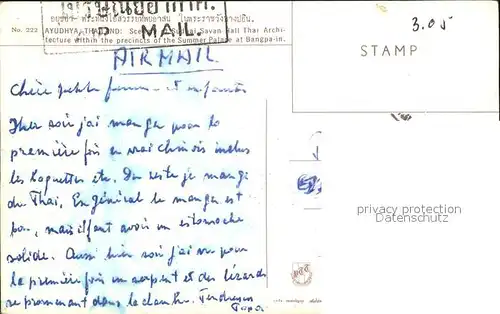 ไปรษณีย์อากาศ
P MAIL.
No. 222 AYUDHYA, THAILAND: Savan Hall Thai Archi-
tecture within the precincts of the Summer Palace at Bangpa-in.
AIR MAIL
3.05
STAMP
Chère petite femme et enfants
Hier soir j'ai mangé pour la
première fois un vrai chinois inclus
les baguettes etc. Du reste je mange
du Thai. En général le manger est
bon, mais il faut avoir un estomac
solide. Aussi hier soir j'ai vu pour
la première fois un serpent et des lézards
se promenant dans la chambre. Tendresses
Papa
privacy protection
Datenschutz